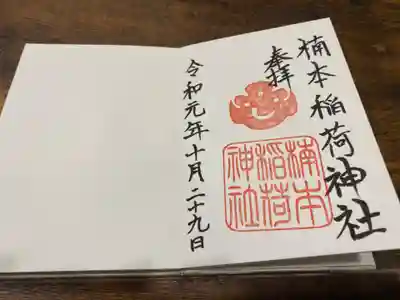 楠本稲荷神社
奉拝
楠本
稲荷
神社
令和元年十月二十九日